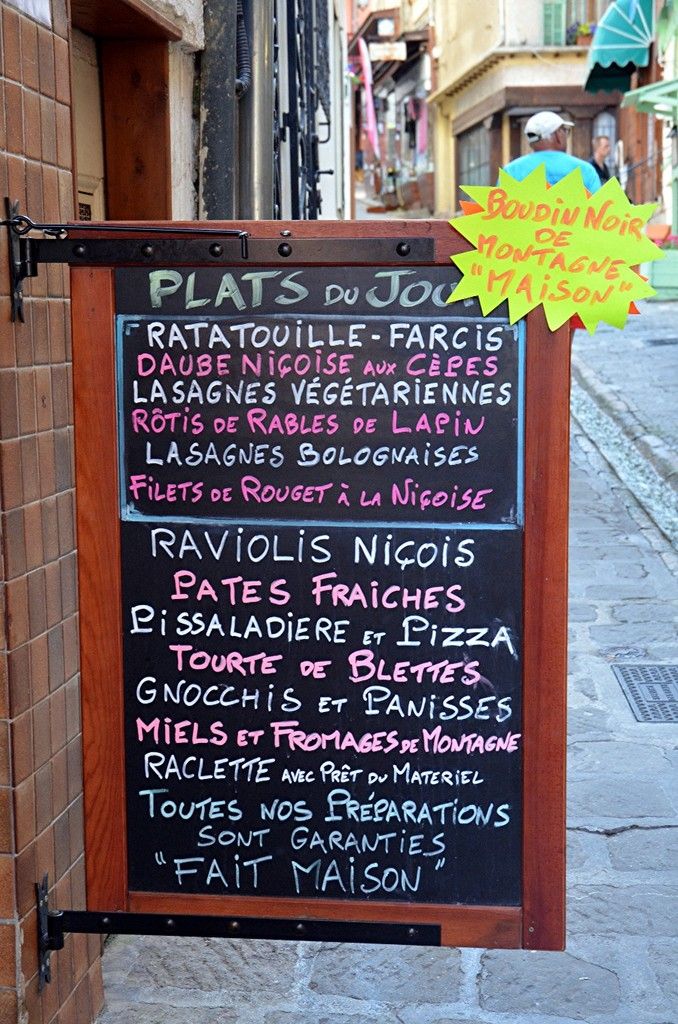 BOUDIN NOIR
DE
MONTAGNE
"MAISON"
PLATS DU JOU
RATATOUILLE - FARCIS
DAUBE NIÇOISE AUX CÈPES
LASAGNES VÉGÉTARIENNES
RÔTIS DE RABLES DE LAPIN
LASAGNES BOLOGNAISES
FILETS DE ROUGET À LA NIÇOISE
RAVIOLIS NIÇOIS
PATES FRAICHES
PISSALADIERE ET PIZZA
TOURTE DE BLETTES
GNOCCHIS ET PANISSES
MIELS ET FROMAGES DE MONTAGNE
RACLETTE AVEC PRÊT DU MATERIEL
TOUTES NOS PRÉPARATIONS
SONT GARANTIES
"FAIT MAISON"